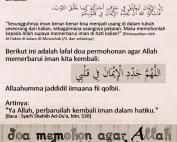 "Sesungguhnya iman benar-benar bisa menjadi usang di dalam tubuh
seseorang dari kalian, sebagaimana usangnya pakaian. Maka memohonlah
kepada Allah supaya memerbarui iman di hati kalian!"
Al-Hakim di dalam Al-Mustadrak
Berikut ini adalah lafal doa permohonan agar Allah
memerbarui iman kita kembali:
اَللَّهُمَّ جَدِّدِ الْإِيْمَانَ فِي قَلْبِي
Allaahumma jaddidil iimaana fii qolbii.
Artinya:
"Ya Allah, perbaruilah kembali iman dalam hatiku."
(Baca : Syarh Shahih Ad-Du'a, hlm. 530)
doa memohon agar Allah